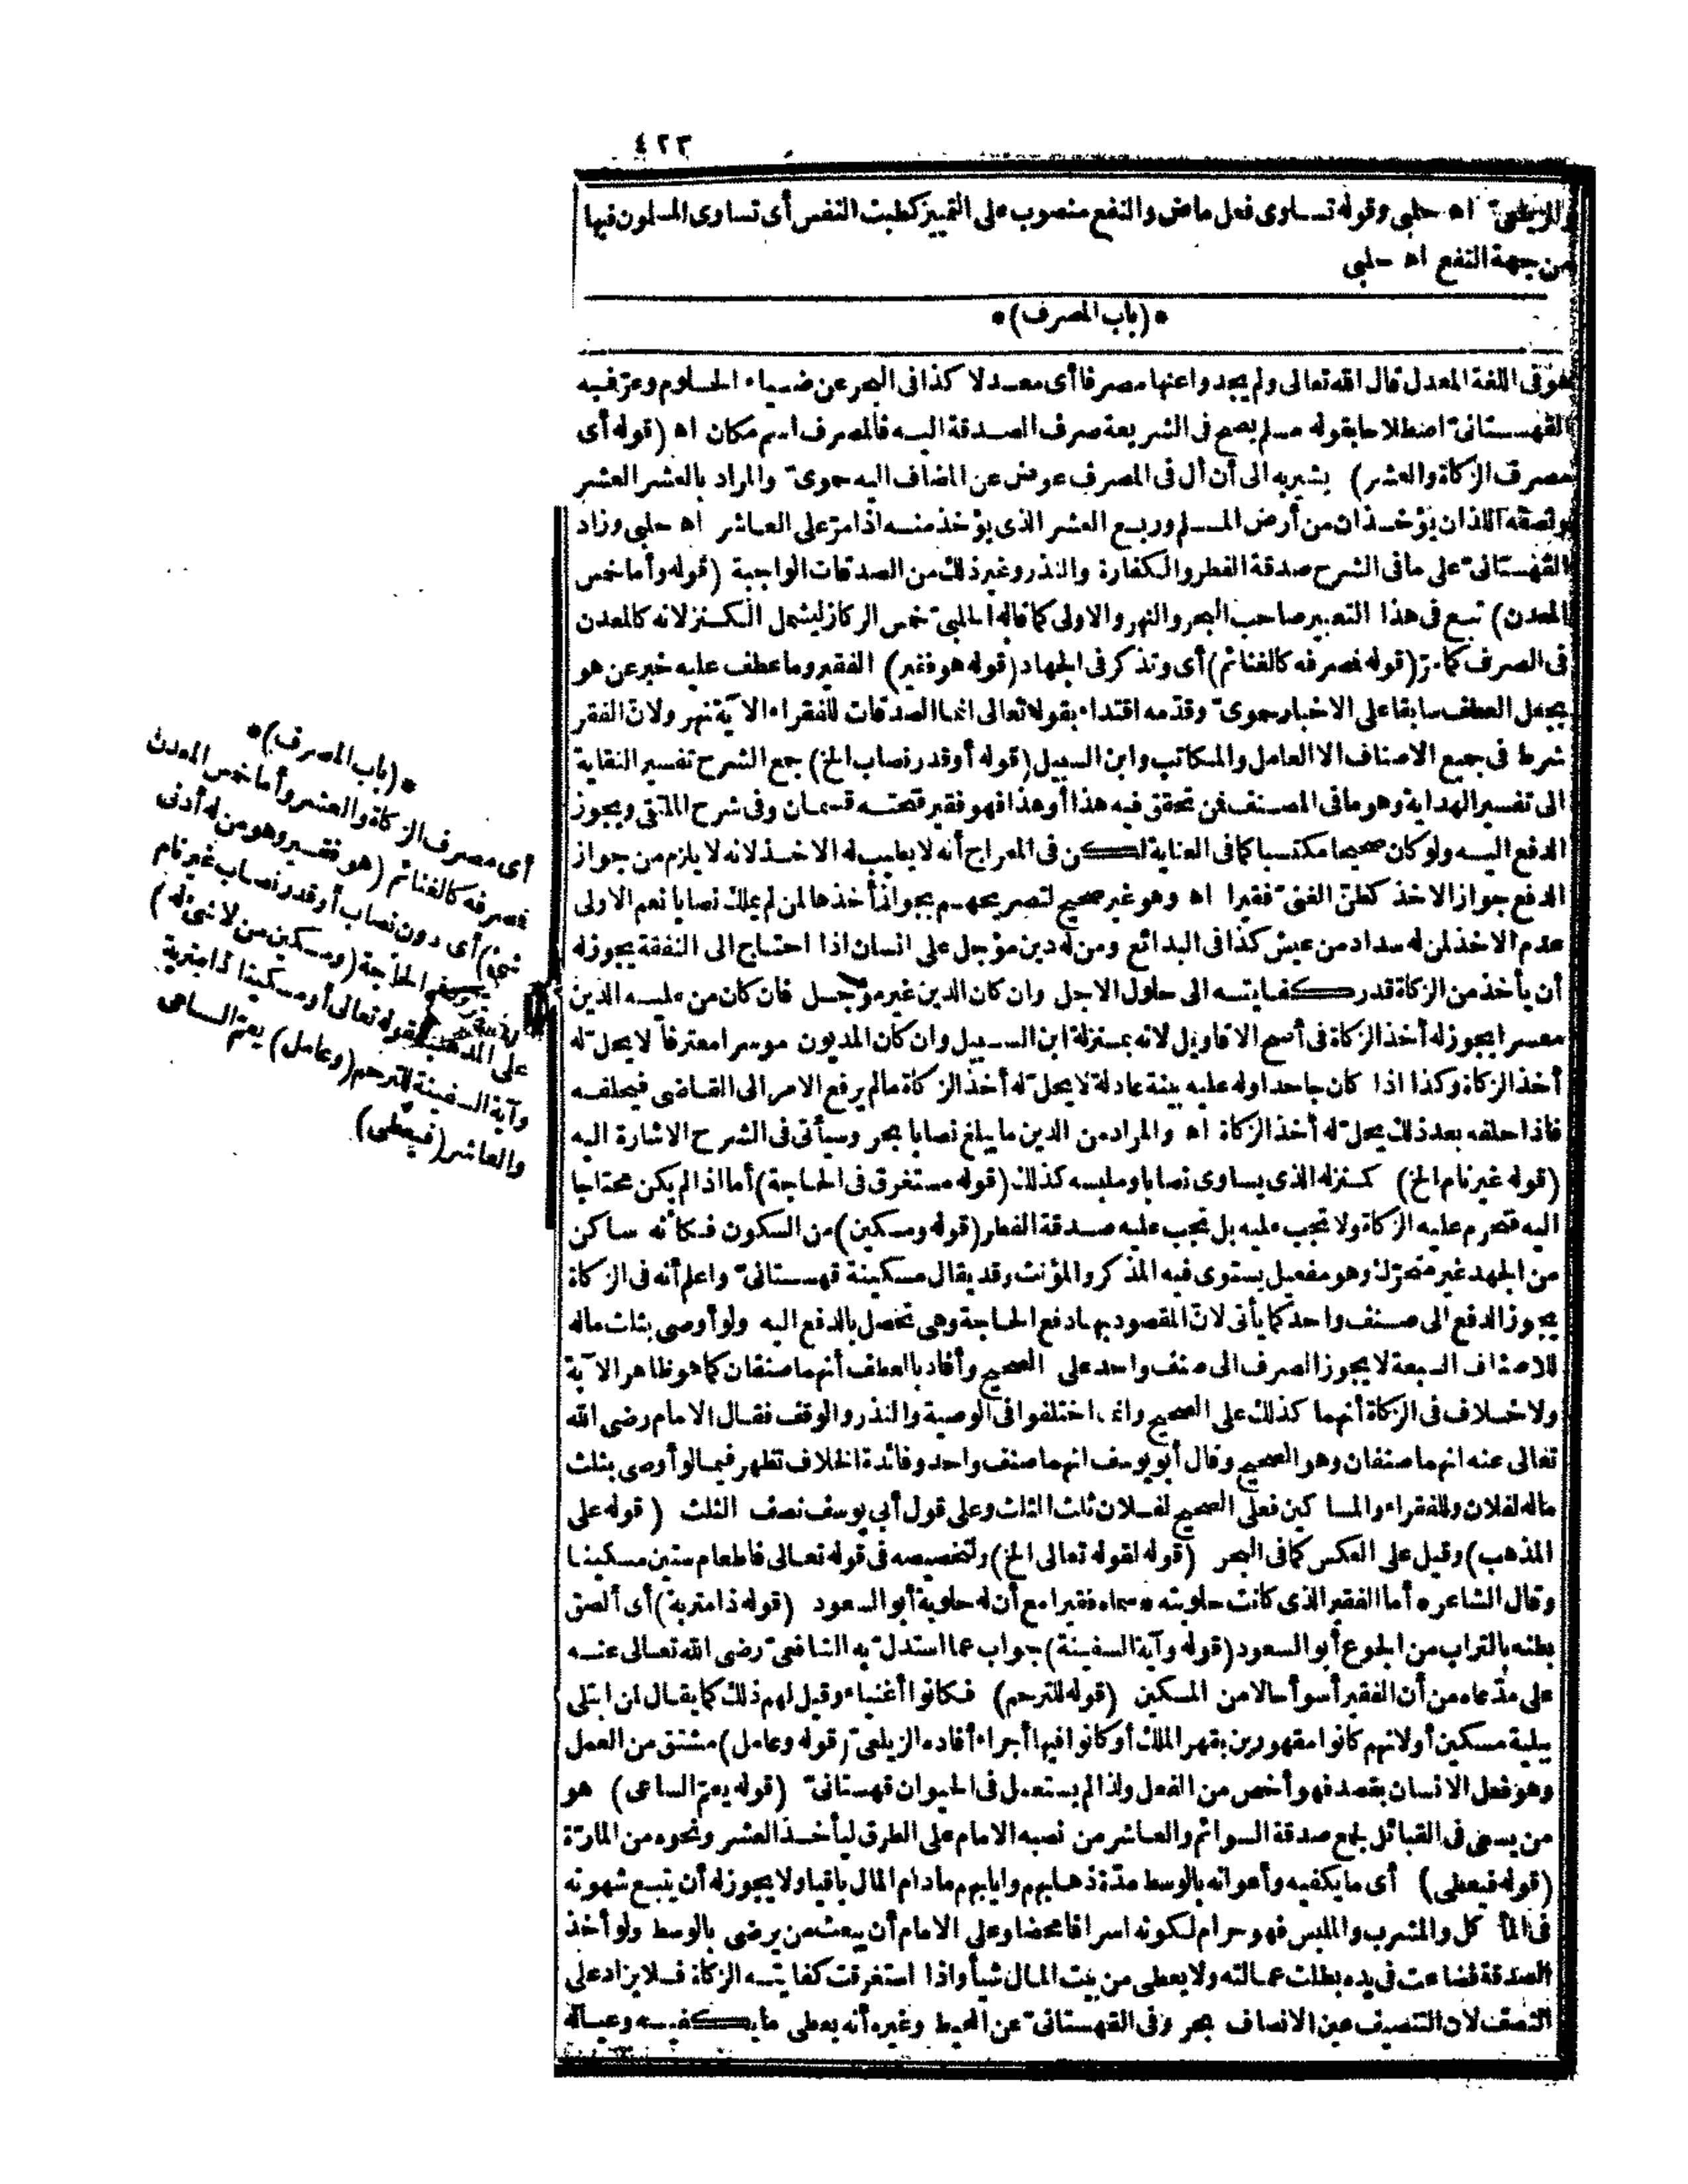 ٤٢٣
والزيلعىّ اه حلبى وقوله تساوى فعل ماض والنفع منصوب على التمييز كطبت النفس أى تساوى المسلمون فيها
من جهة النفع اه حلبى
*(باب المصرف)*
هو فى اللغة المعدل قال الله تعالى ولم يجدوا عنها مصرفا أى معدلا كذا فى البحر عن ضياء الحلوم وعرّفه
القهستانىّ اصطلاحا بقوله مسلم يصح فى الشريعة صرف الصدقة اليه فالمصرف اسم مكان اه (قوله أى
مصرف الزكاة والعشر) يشير به الى أن أل فى المصرف عوض عن المضاف اليه حموىّ والمراد بالعشر العشر
ونصفه اللذان يؤخذان من أرض المسلم وربع العشر الذى يؤخذ منه اذا مرّ على العاشر اه حلبى وزاد
القهستانىّ على ما فى الشرح صدقة الفطر والكفارة والنذر وغير ذلك من الصدقات الواجبة (قوله وأما خمس
المعدن) تبع فى هذا التعبير صاحب البحر والنهر والاولى كما قاله الحلبىّ خمس الركاز ليشمل الكنز لانه كالمعدن
فى الصرف كما مرّ (قوله فصرفه كالغنائم) أى وتذكر فى الجهاد (قوله هو فقير) الفقير وما عطف عليه خبر عن هو
بجعل العطف سابقا على الاخبار حموىّ وقدّمه اقتداء بقوله تعالى انما الصدقات للفقراء الآية نهر ولانّ الفقر
شرط فى جميع الاصناف الا العامل والمكاتب وابن السبيل (قوله أو قدر نصاب الخ) جمع الشرح تفسير النقاية
الى تفسير الهداية وهو ما فى المصنف فمن تحقق فيه هذا أو هذا فهو فقير فتحته قسمان وفى شرح الملتقى ويجوز
الدفع اليه ولو كان صحيحا مكتسبا كما فى العناية لكن فى المعراج أنه لا يطيب له الاخذ لانه لا يلزم من جواز
الدفع جواز الاخذ كظنّ الغنىّ فقيرا اه وهو غير صحيح لتصريحهم بجواز أخذها لمن لم يملك نصابا نعم الاولى
عدم الاخذ لمن له سداد من عيش كذا فى البدائع ومن له دين مؤجل على انسان اذا احتاج الى النفقة يجوز له
أن يأخذ من الزكاة قدر كفايته الى حلول الاجل وان كان الدين غير مؤجل فان كان من عليه الدين
معسرا يجوز له أخذ الزكاة فى أصح الاقاويل لانه بمنزلة ابن السبيل وان كان المديون موسرا معترفا لا يحلّ له
أخذ الزكاة وكذا اذا كان جاحدا وله عليه بينة عادلة لا يحلّ له أخذ الزكاة ما لم يرفع الامر الى القاضى فيحلفه
فاذا حلفه بعد ذلك يحلّ له أخذ الزكاة اه والمراد من الدين ما يبلغ نصابا بحر وسيأتى فى الشرح الاشارة اليه
(قوله غير نام الخ) كمنزله الذى يساوى نصابا وملبسه كذلك (قوله مستغرق فى الحاجة) أما اذا لم يكن محتاجا
اليه فتحرم عليه الزكاة ولا تجب عليه بل تجب عليه صدقة الفطر (قوله ومسكين) من السكون فكأنه ساكن
من الجهد غير متحرّك وهو مفعيل يستوى فيه المذكر والمؤنث وقد يقال مسكينة قهستانىّ واعلم أنه فى الزكاة
يجوز الدفع الى صنف واحد كما يأتى لانّ المقصود بها دفع الحاجة وهى تحصل بالدفع اليه ولو أوصى بثلث ماله
للاصناف السبعة لا يجوز الصرف الى صنف واحد على الصحيح وأفاد بالعطف أنهما صنفان كما هو ظاهر الآية
ولا خلاف فى الزكاة أنهما كذلك على الصحيح وانما اختلفوا فى الوصية والنذر والوقف فقال الامام رضى الله
تعالى عنه انهما صنفان وهو الصحيح وقال أبو يوسف انهما صنف واحد وفائدة الخلاف تظهر فيما لو أوصى بثلث
ماله لفلان وللفقراء والمساكين فعلى الصحيح لفلان ثلث الثلث وعلى قول أبى يوسف نصف الثلث (قوله على
المذهب) وقيل على العكس كما فى البحر (قوله لقوله تعالى الخ) ولتخصيصه فى قوله تعالى فاطعام ستين مسكينا
وقال الشاعر * أما الفقير الذى كانت حلوبته * سماه فقيرا مع أن له حلوبة أبو السعود (قوله ذا متربة) أى ألصق
بطنه بالتراب من الجوع أبو السعود (قوله وآية السفينة) جواب عما استدلّ به الشافعىّ رضى الله تعالى عنه
على مدّعاه من أن الفقير أسوأ حالا من المسكين (قوله للترحم) فكانوا أغنياء وقيل لهم ذلك كما يقال لمن ابتلى
ببلية مسكين أو لانهم كانوا مقهورين بقهر الملك أو كانوا فيها أجراء أفاده الزيلعىّ (قوله وعامل) مشتق من العمل
وهو فعل الانسان بقصد فهو أخص من الفعل ولذا لم يستعمل فى الحيوان قهستانىّ (قوله يعمّ الساعى) هو
من يسعى فى القبائل لجمع صدقة السوائم والعاشر من نصبه الامام على الطرق ليأخذ العشر ونحوه من المارّة
(قوله فيعطى) أى ما يكفيه وأعوانه بالوسط مدّة ذهابهم وايابهم ما دام المال باقيا ولا يجوز له أن يتبع شهوته
فى المأكل والمشرب والملبس فهو حرام لكونه اسرافا محضا وعلى الامام أن يبعث من يرضى بالوسط ولو أخذ
الصدقة فضاعت فى يده بطلت عمالته ولا يعطى من بيت المال شيأ واذا استغرقت كفايته الزكاة فلا يزاد على
النصف لان التنصيف عين الانصاف بحر وفى القهستانىّ عن المحيط وغيره أنه يعطى ما يكفيه وعياله
*(باب المصرف)*
أى مصرف الزكاة والعشر وأما خمس المعدن
فصرفه كالغنائم (هو فقير وهو من له أدنى
شئ) أى دون نصاب أو قدر نصاب غير نام
الحاجة (ومسكين من لا شئ له)
على المذهب لقوله تعالى أو مسكينا ذا متربة
وآية السفينة للترحم (وعامل) يعمّ الساعى
والعاشر (فيعطى)